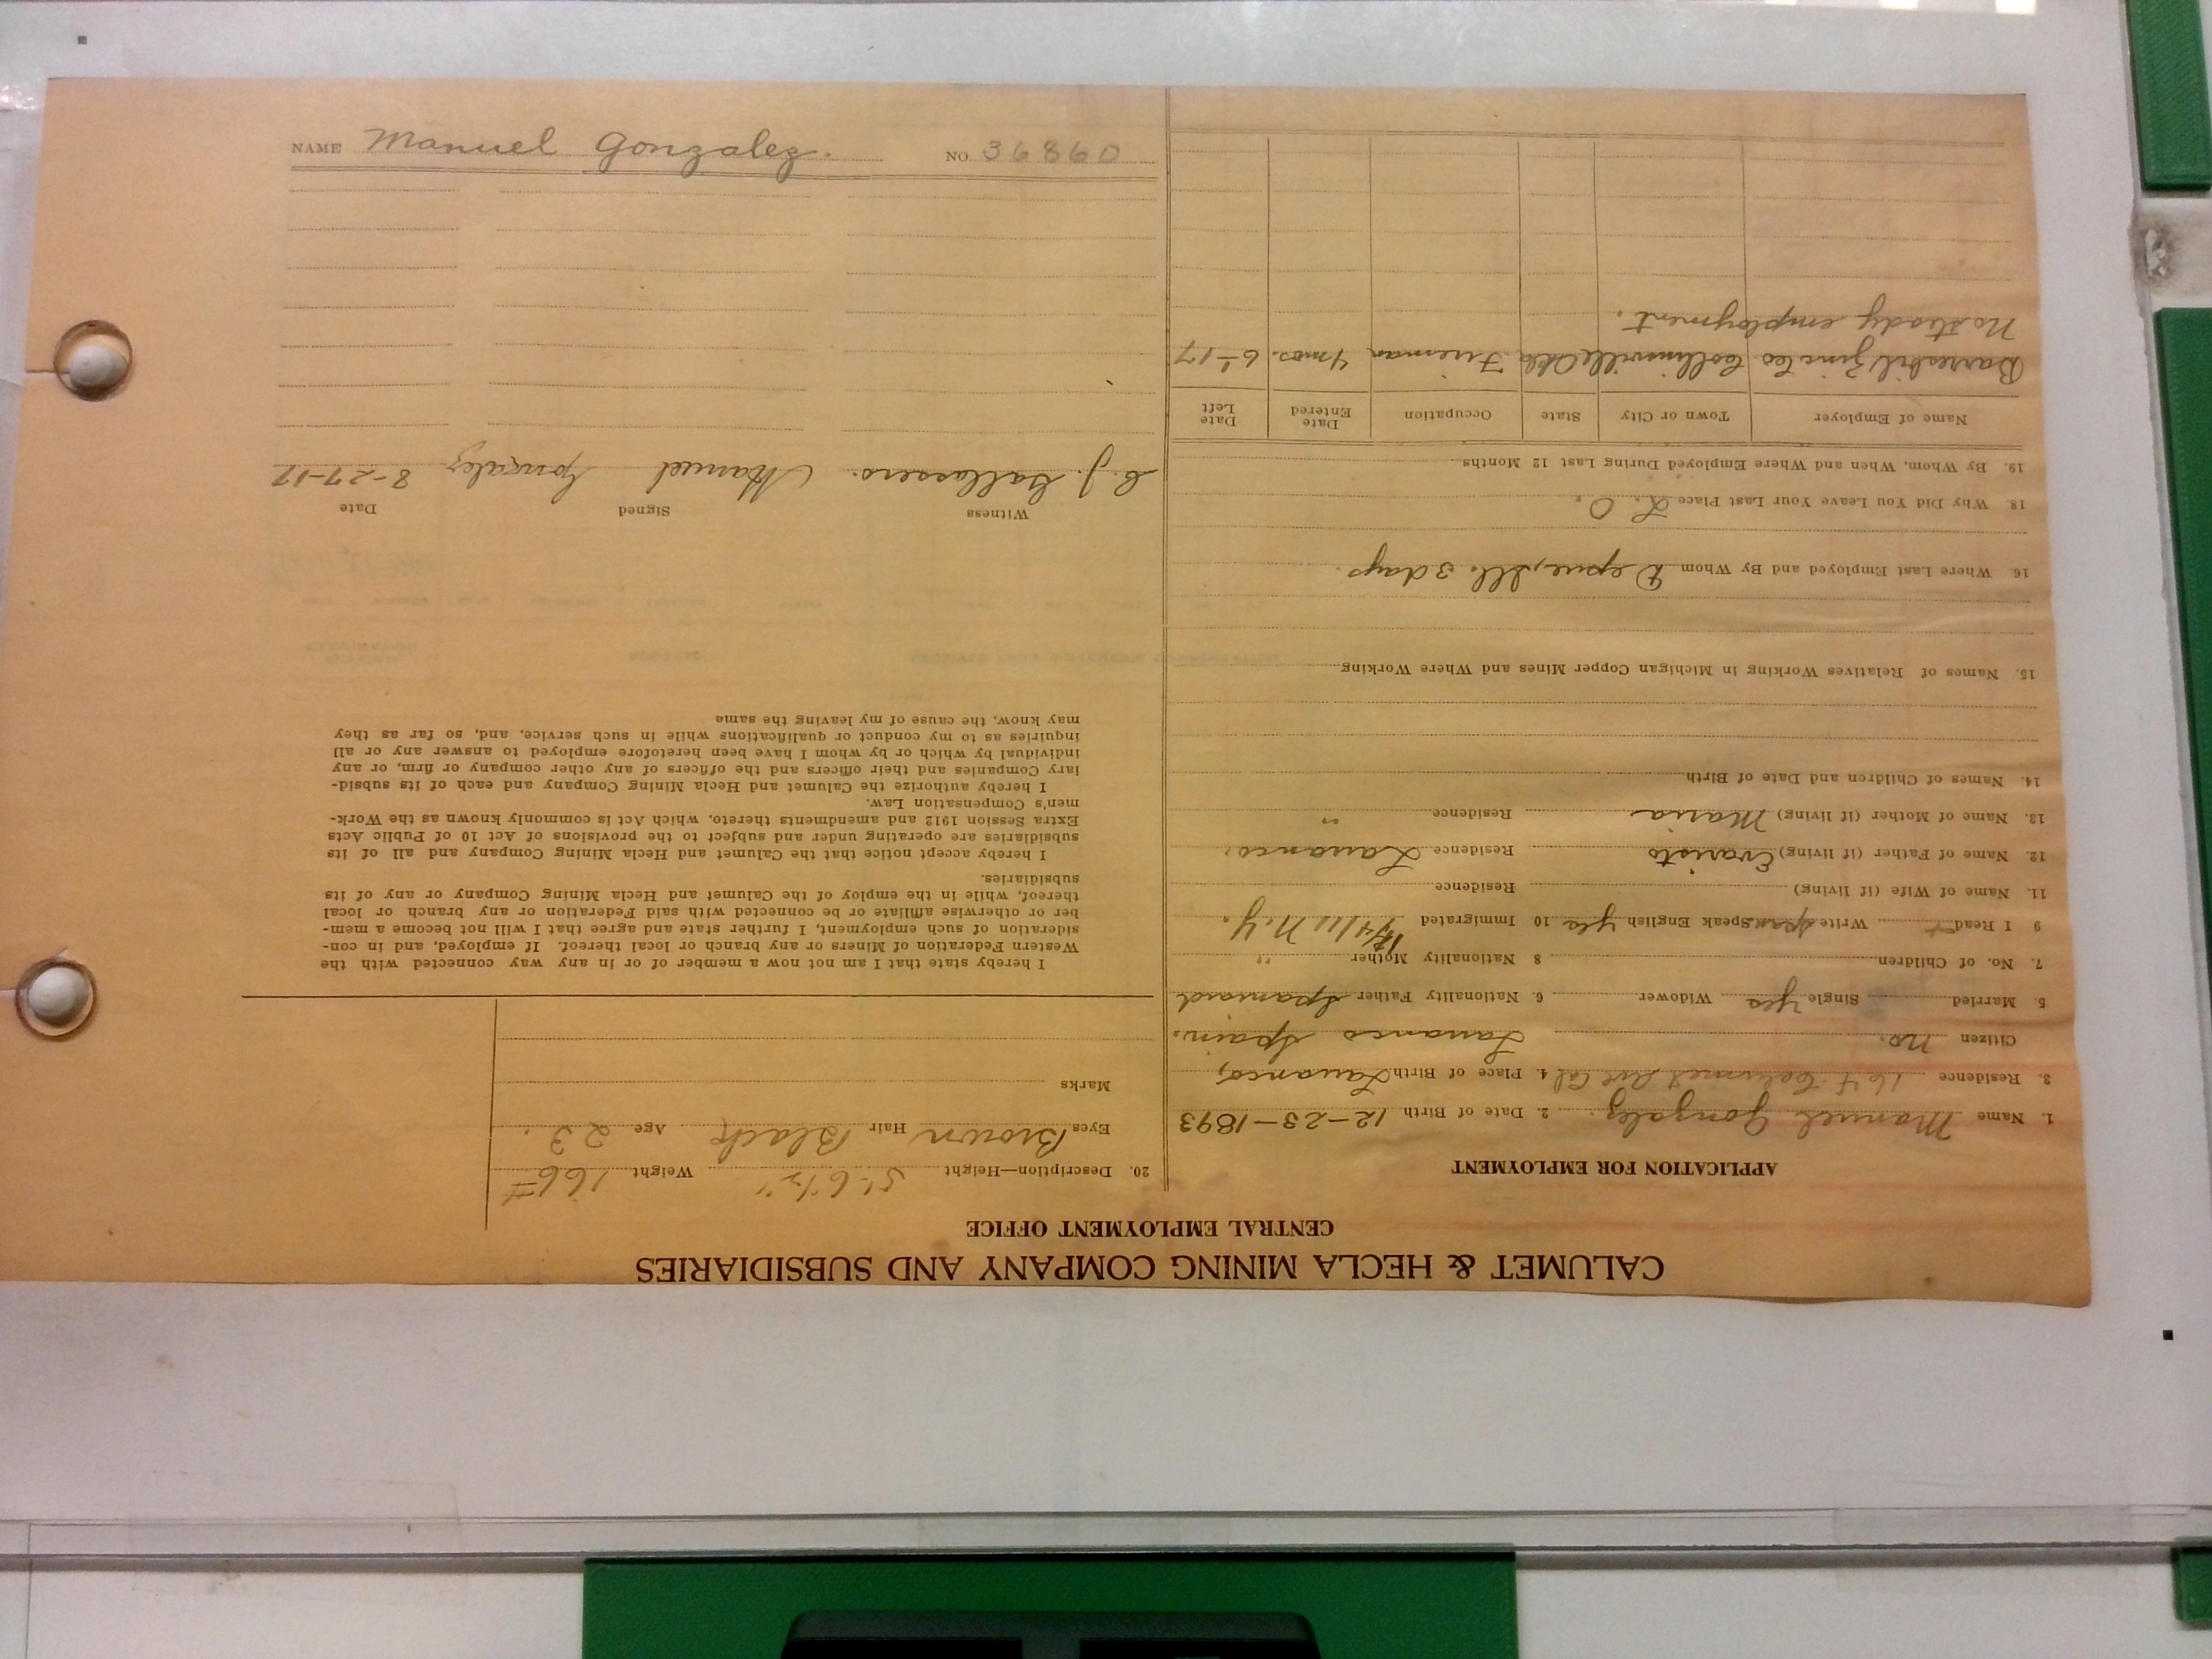 NAME Manuel Gonzalez. NO. 36860
CALUMET & HECLA MINING COMPANY AND SUBSIDIARIES
CENTRAL EMPLOYMENT OFFICE
APPLICATION FOR EMPLOYMENT
1. Name Manuel Gonzalez. 2. Date of Birth 12-23-1893
3. Residence 164 Calumet Ave Cal 4. Place of Birth Luanco,
Citizen no. Luanco Spain.
5. Married Single yes Widower 6. Nationality Father Spaniard
7. No. of Children 8 Nationality Mother "
9 I Read Write Span Speak English yes 10 Immigrated N.Y.
11. Name of Wife (if living) Residence
12. Name of Father (if living) Evaristo Residence Luanco.
13. Name of Mother (if living) Maria Residence "
14. Names of Children and Date of Birth
15. Names of Relatives Working in Michigan Copper Mines and Where Working
16. Where Last Employed and By Whom Depue, Ill. 3 days.
18. Why Did You Leave Your Last Place L. O.
19. By Whom, When and Where Employed During Last 12 Months
Name of Employer Town or City State Occupation Date Entered Date Left
Zinc Co Collinsville Okla Fireman 4 mos. 6-17
No steady employment.
20. Description—Height 5'-6 1/2" Weight 166#
Eyes Brown Hair Black Age 23.
Marks
I hereby state that I am not now a member of or in any way connected with the
Western Federation of Miners or any branch or local thereof. If employed, and in con-
sideration of such employment, I further state and agree that I will not become a mem-
ber or otherwise affiliate or be connected with said Federation or any branch or local
thereof, while in the employ of the Calumet and Hecla Mining Company or any of its
subsidiaries.
I hereby accept notice that the Calumet and Hecla Mining Company and all of its
subsidiaries are operating under and subject to the provisions of Act 10 of Public Acts
Extra Session 1912 and amendments thereto, which Act is commonly known as the Work-
men's Compensation Law.
I hereby authorize the Calumet and Hecla Mining Company and each of its subsid-
iary Companies and their officers and the officers of any other company or firm, or any
individual by which or by whom I have been heretofore employed to answer any or all
inquiries as to my conduct or qualifications while in such service, and, so far as they
may know, the cause of my leaving the same
Witness Signed Date
C. J. Manuel Gonzalez 8-27-17